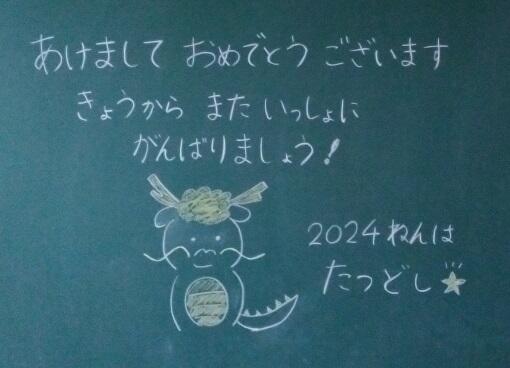 あけまして おめでとう ございます
きょうから また いっしょに
がんばりましょう!
2024ねんは
たつどし